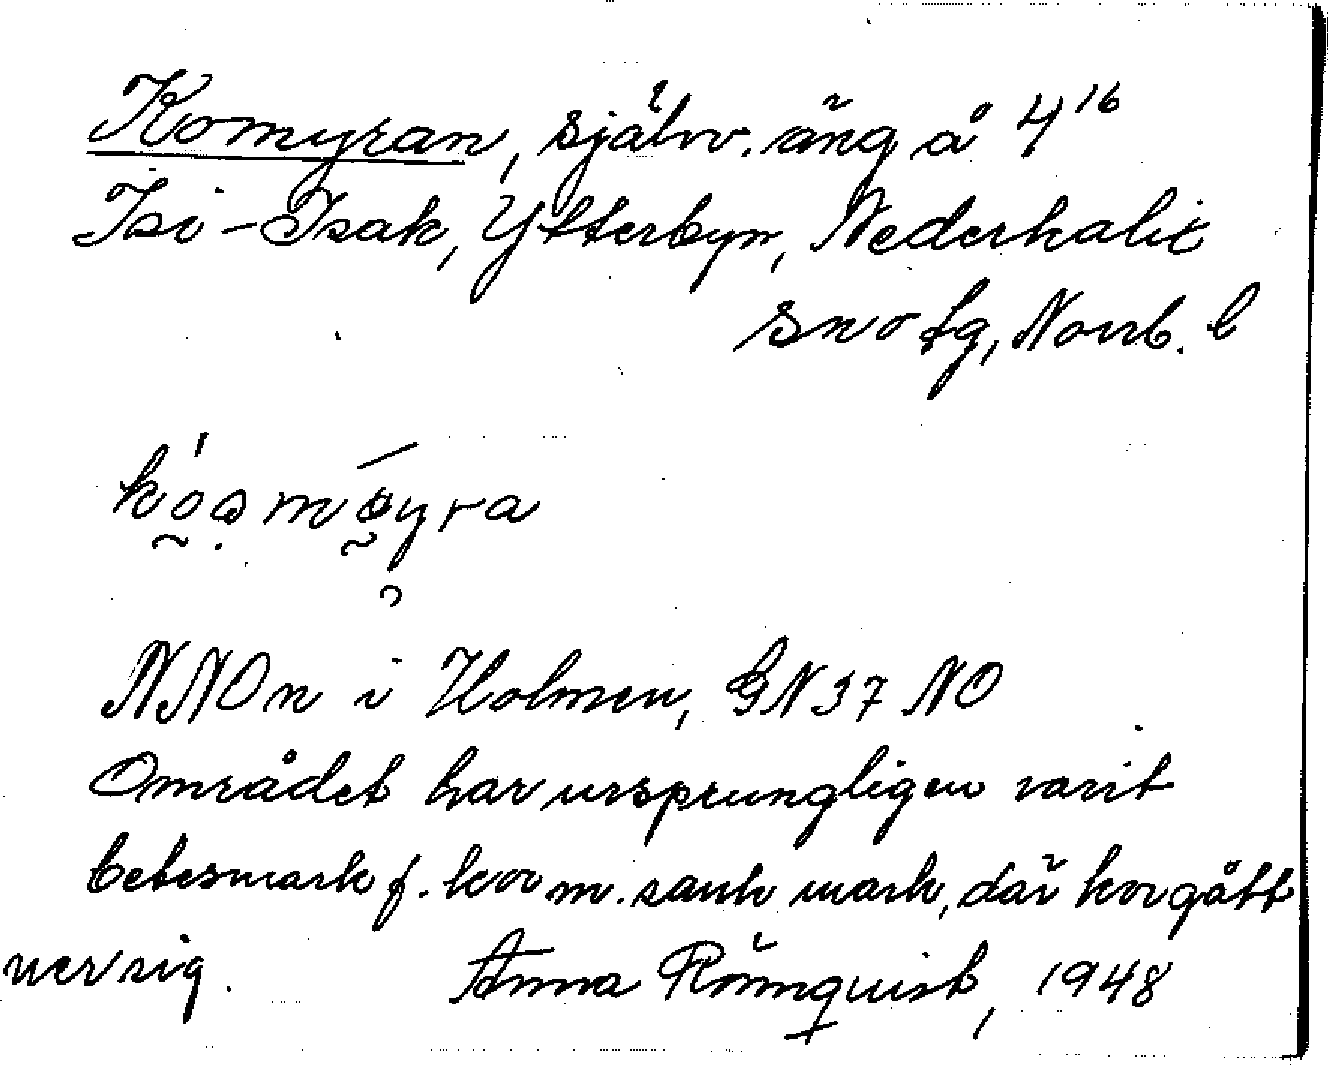 Komyran, självv. äng å 4¹⁶
Isi-Isak, Ytterbyn, Nederkalix
sn o tg, Norrb. l
NNO n i Holmen, GN 37 NO
Området har ursprungligen varit
betesmark f. kor m. sank mark, där kor gått
ner sig. Anna Rönnquist, 1948